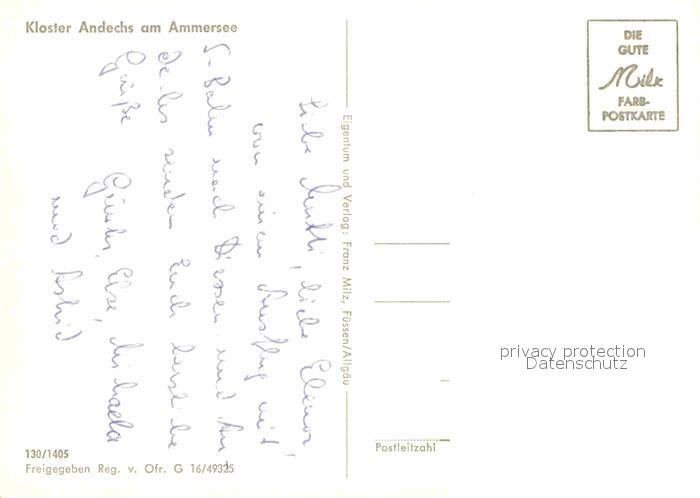 Kloster Andechs am Ammersee
DIE
GUTE
Milz
FARB-
POSTKARTE
Liebe Mutti, liebe Elenor,
von einem Ausflug mit
S-Bahn nach Diessen und An
dechs senden Euch herzliche
Grüße
Günter, Else, Michaela
und Astrid
Eigentum und Verlag: Franz Milz, Füssen/Allgäu
privacy protection
Datenschutz
Postleitzahl
130/1405
Freigegeben Reg. v. Ofr. G 16/49325